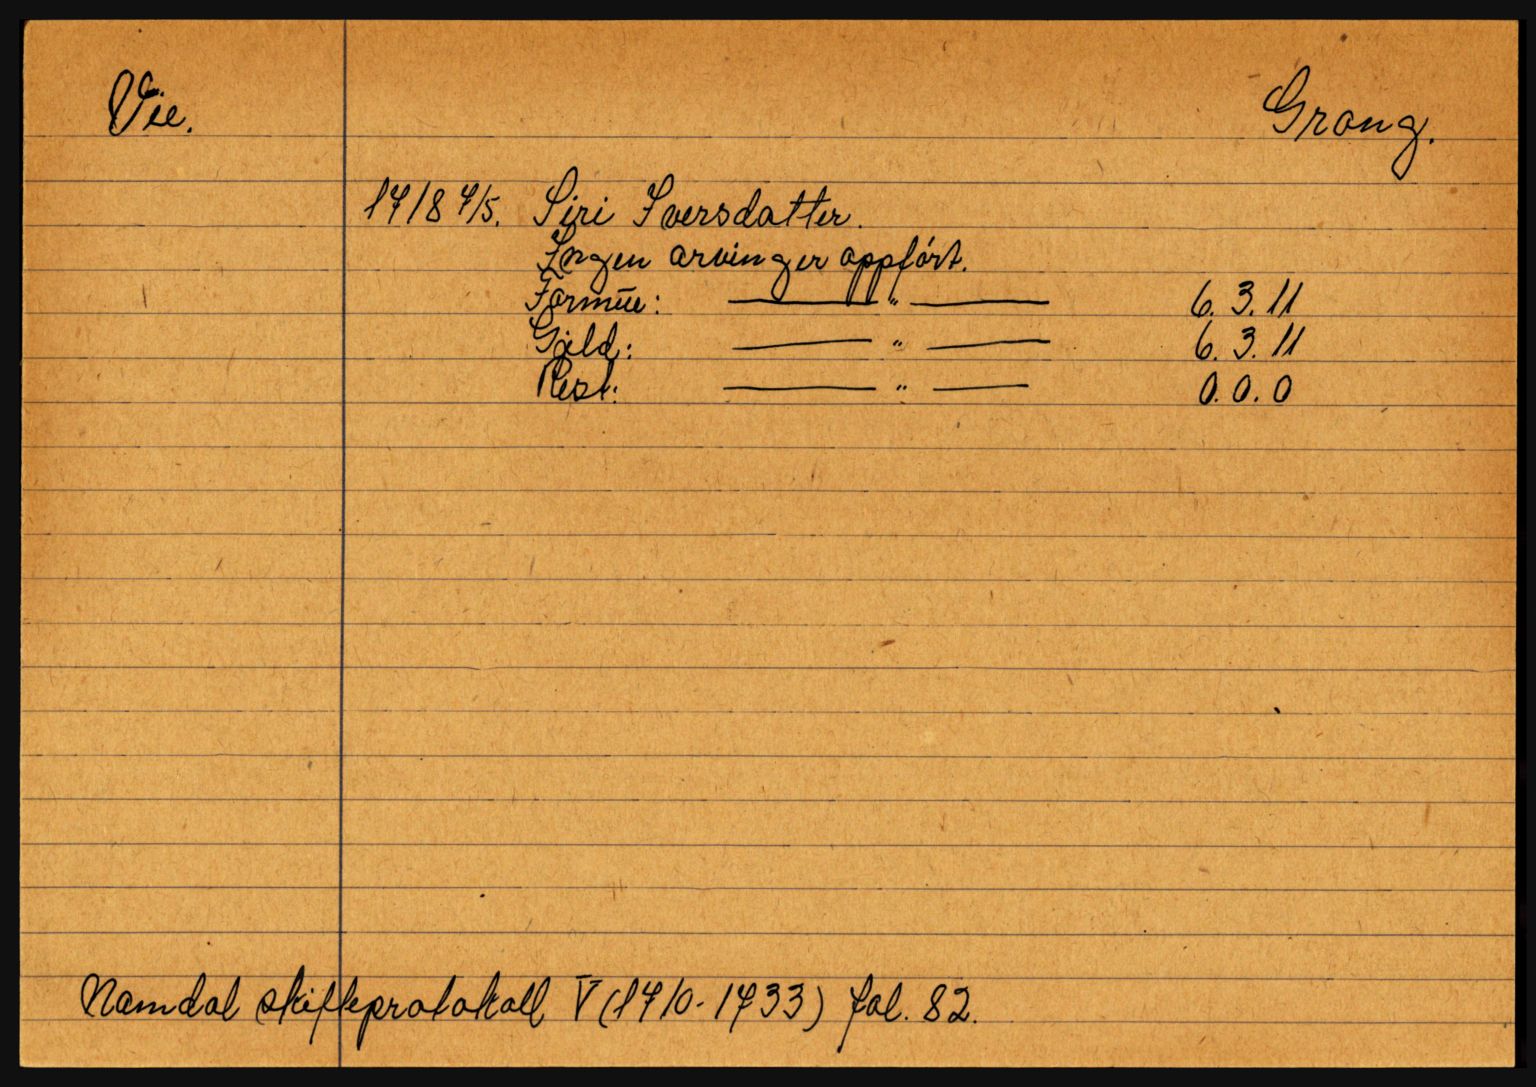 Vie.
Grong.
1718 7/5. Siri Iversdatter.
Ingen arvinger oppført.
Formue: —— " —— 6. 3. 11
Gäld: —— " —— 6. 3. 11
Rest: —— " —— 0. 0. 0
Namdal skifteprotokoll V (1710-1733) fol. 82.